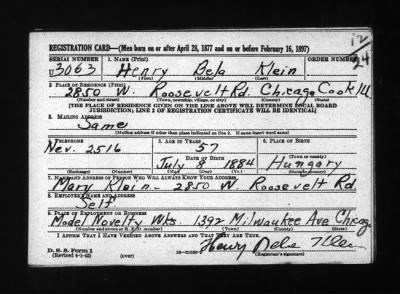 REGISTRATION CARD—(Men born on or after April 28, 1877 and on or before February 16, 1897)
SERIAL NUMBER 1. NAME (Print) ORDER NUMBER
U 3063 Henry Bela Klein
(First) (Middle) (Last)
12
24
2. PLACE OF RESIDENCE (Print)
2850 W. Roosevelt Rd. Chicago Cook Ill
(Number and street) (Town, township, village, or city) (County) (State)
[THE PLACE OF RESIDENCE GIVEN ON THE LINE ABOVE WILL DETERMINE LOCAL BOARD
JURISDICTION; LINE 2 OF REGISTRATION CERTIFICATE WILL BE IDENTICAL]
3. MAILING ADDRESS
Same
[Mailing address if other than place indicated on line 2. If same insert word same]
4. TELEPHONE 5. AGE IN YEARS 6. PLACE OF BIRTH
Nev. 2516 57
DATE OF BIRTH (Town or county)
July 8 1884 Hungary
(Exchange) (Number) (Mo.) (Day) (Yr.) (State or country)
7. NAME AND ADDRESS OF PERSON WHO WILL ALWAYS KNOW YOUR ADDRESS
Mary Klein - 2850 W. Roosevelt Rd
8. EMPLOYER'S NAME AND ADDRESS
Self
9. PLACE OF EMPLOYMENT OR BUSINESS
Model Novelty Wks. 1392 Milwaukee Ave Chicago
(Number and street or R. F. D. number) (Town) (County) (State)
I AFFIRM THAT I HAVE VERIFIED ABOVE ANSWERS AND THAT THEY ARE TRUE.
Henry Bela Klein
D. S. S. Form 1
(Revised 4-1-42) (over) (Registrant's signature)